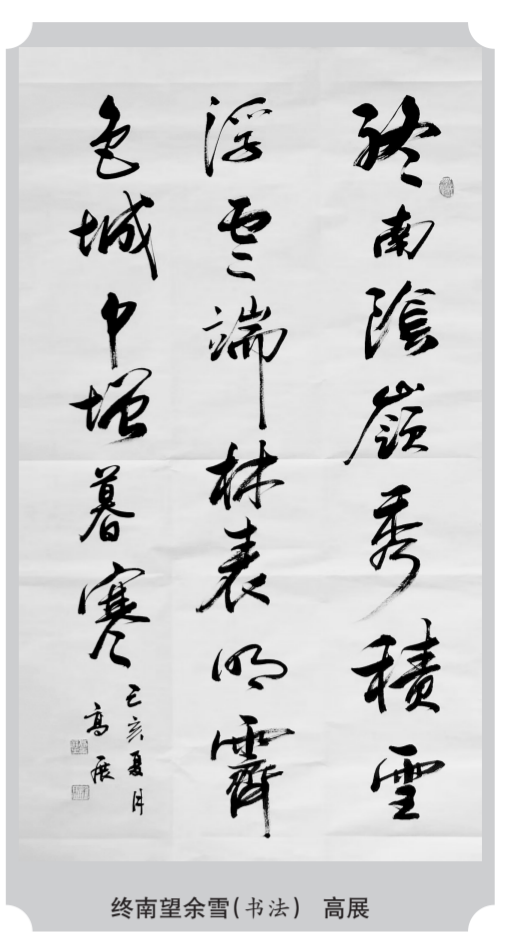 終南陰嶺秀積雪
浮雲端林表明霽
色城中增暮寒
己亥夏月
高展
终南望余雪(书法) 高展